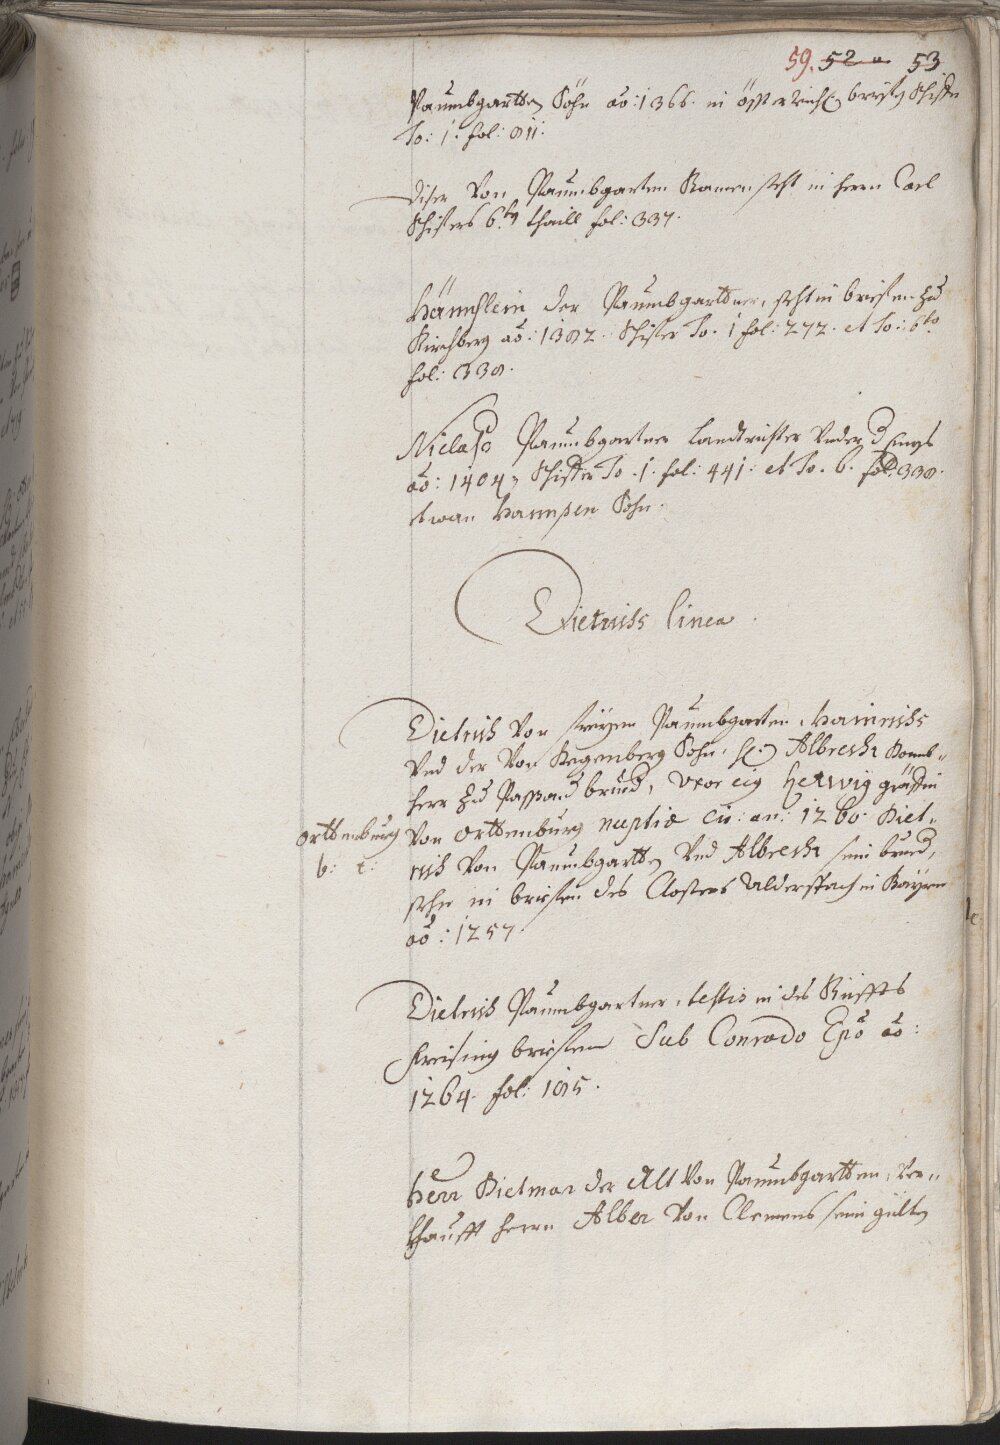 59. 52 a 53
Paumbgartten Söhn aõ: 1366. in össterreich: brieff, Schifer
To: 1. fol: 811:
Diser Von Paumbgarten Namen steht in herrn Carl
Schifers 6.ten thaill fol: 337.
Hännslein der Paumbgarttner, steht in briefen Zu
Kirchberg aõ: 1382. Schifer To. 1 fol: 272. et To: 6to
fol: 338.
Niclaß Paumbgartner Landtrichter Under d Enns
aõ: 1404, Schifer To. 1. fol: 441. et To. 6. fol: 338.
etwan Hannsen Sohn.
Dietrichs linea.
Dietrich Von freyen Paumbgarten, Hainrichs
Und der Von Regenberg Sohn, Albrecht Domb-
herr Zu Passau brued, Uxor eig Hetwig gräffin
Von Orttenburg nuptiæ : an: 1260. Diet-
rich Von Paumbgartten Und Albrecht sein brued,
stehn in briefen des Closters Alderspach in Bayrn
aõ: 1257.
Orttenburg
b: t:
Dietrich Paumbgartner, testis in des Stiffts
Freising briefen Sub Conrado Epõ aõ:
1264. fol: 185.
Herr Dietmar der Alt Von Paumbgartten, Ver-
khaufft herrn Alber Von Clemens sein gülten